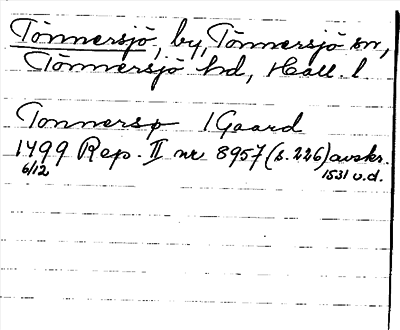 Tönnersjö, by, Tönnersjö sn,
Tönnersjö hd, Hall. l
Tonnersø 1 Gaard
1499 Rep. II nr 8957 (s. 226) avskr.
6/12 1531 u.d.